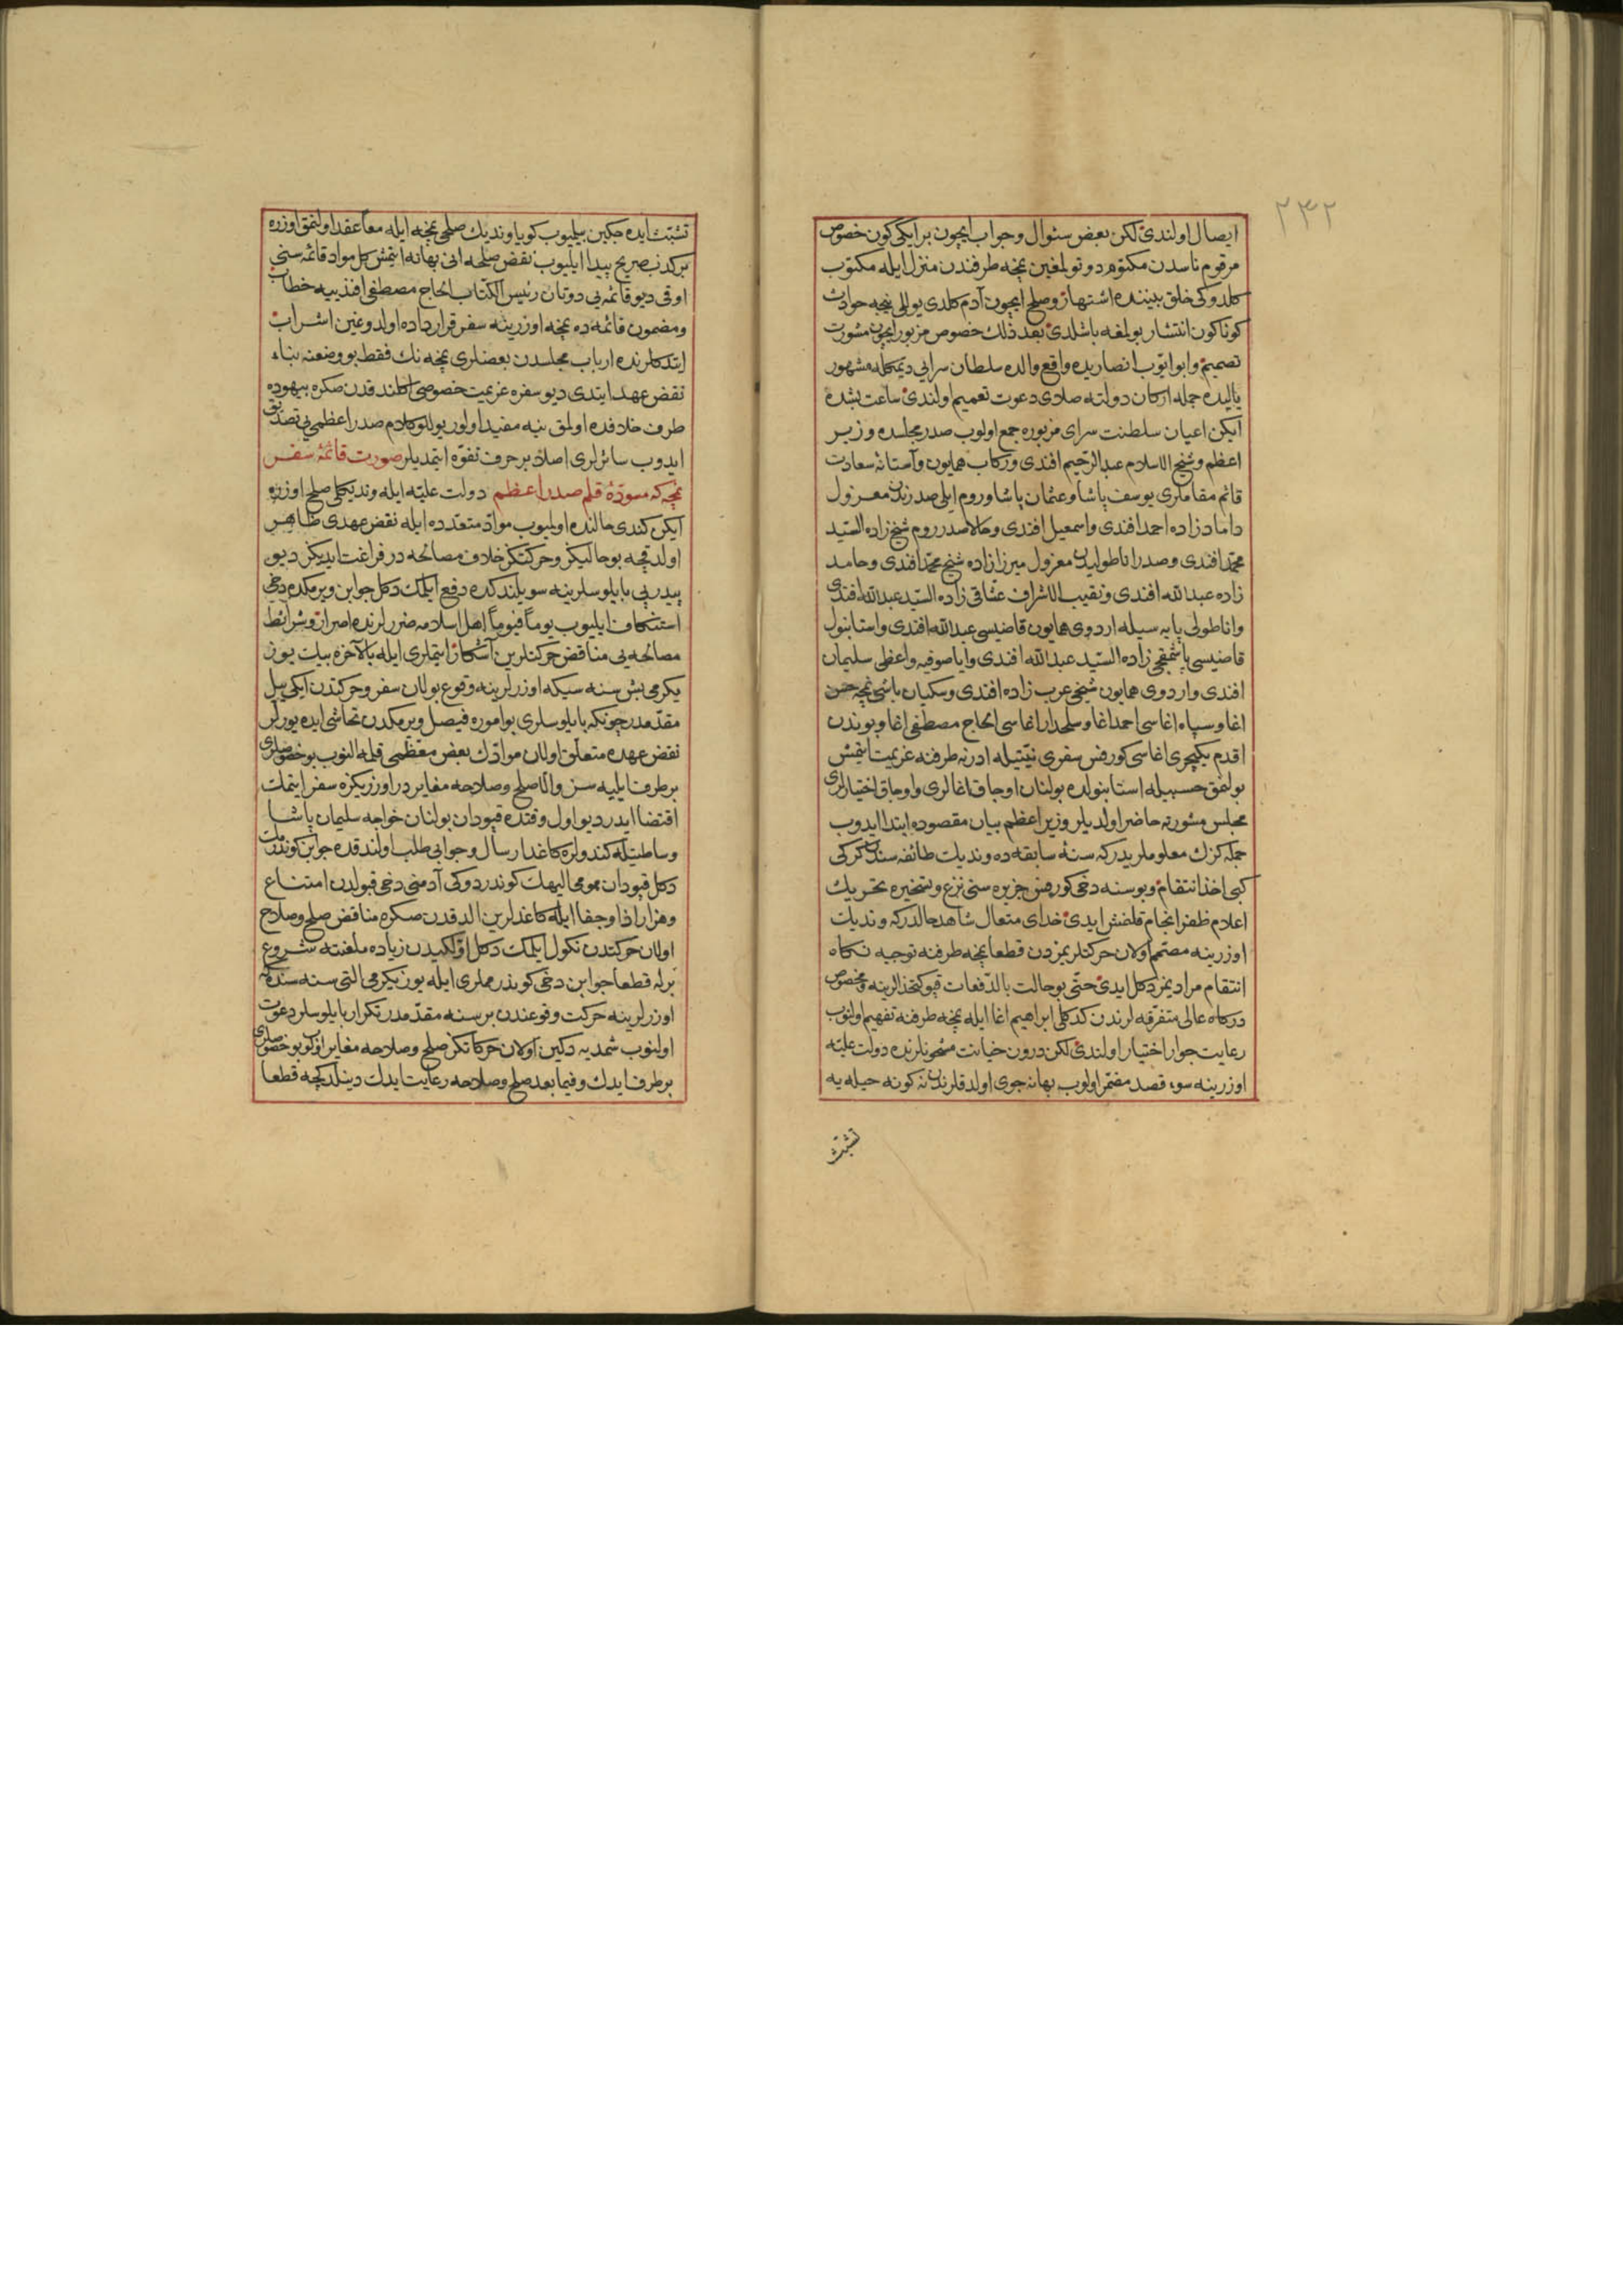 ٢٣٢
ايصال اولندى لكن بعض سئوال وجواب ايچون بر ايكى كون خصوص
مرقوم ناسدن مكتوم دوتولمغين نمچه طرفندن منزل ايله مكتوب
كلدوكى خلق بيننده اشتهار وصلح ايچون آدم كلدى يوللى نيجه حوادث
كوناكون انتشار بولمغه باشلدى بعد ذلك خصوص مزبور ايچون مشورت
تصميم وابو ايوب انصاريده واقع والده سلطان سرايى ديمكله مشهور
ياليده جمله اركان دولته صلاى دعوت تعميم اولندى ساعت بشده
ايكن اعيان سلطنت سراى مزبوره جمع اولوب صدر مجلسده وزير
اعظم وشيخ الاسلام عبدالرحيم افندى وركاب همايون وآستانه سعادت
قائم مقاملرى يوسف پاشا وعثمان پاشا وروم ايلى صدرندن معزول
داماد زاده احمد افندى واسمعيل افندى وحالا صدر روم شيخ زاده السيد
محمد افندى وصدر اناطوليدن معزول ميرزا زاده شيخ محمد افندى وحامد
زاده عبدالله افندى ونقيب الاشراف عشاقى زاده السيد عبدالله افندى
واناطولى پايه سيله اردوى همايون قاضيسى عبدالله افندى واستانبول
قاضيسى پاشمقجى زاده السيد عبدالله افندى واياصوفيه واعظى سليمان
افندى واردوى همايون شيخى عرب زاده افندى وسكبان باشى نمچه حسن
اغا وسپاه اغاسى احمد اغا وسلحدار اغاسى الحاج مصطفى اغا وبوندن
اقدم يكيچرى اغاسى كورفس سفرى نيتيله ادرنه طرفنه عزيمت ايتمش
بولنمق حسبيله استانبولده بولنان اوجاق اغالرى واوجاق اختيارلرى
مجلس مشورته حاضر اولديلر وزير اعظم بيان مقصوده ابتدا ايدوب
جمله كزك معلومليدر كه سنهٔ سابقه ده ونديك طائفه سندن كركى
كبى اخذ انتقام وبو سنه دخى كورفس جزيره سنى نزع وتسخيره تحريك
اعلام ظفر انجام قلنمش ايدى خداى متعال شاهد حالدر كه ونديك
اوزرينه مصمم اولان حركتلريمزدن قطعا نمچه طرفنه توجيه نكاه
انتقام مراديمز دكل ايدى حتى بو حالت بالدفعات قپوكتخدالرينه وبخصوص
دركاه عالى متفرقه لرندن كدكلى ابراهيم اغا ايله نمچه طرفنه تفهيم اولنوب
رعايت جوار اختيار اولندى لكن درون خيانت مشحونلرنده دولت عليه
اوزرينه سوء قصد مضمر اولوب بهانه جوى اولدقلرندن نه كونه حيله يه
تشبث
تشبث ايده جكين بيلميوب كويا ونديك صلحى نمچه ايله معا عقد اولنمق اوزره
بر كذب صريح پيدا ايليوب نقض صلحه انى بهانه ايتمش كل مواد قائمه سنى
اوقى ديو قائمه يى دوتان رئيس الكتاب الحاج مصطفى افندييه خطاب
ومضمون قائمه ده نمچه اوزرينه سفر قرارداده اولدوغين اشراب
ايتدكلرنده ارباب مجلسدن بعضلرى نمچه نك فقط بو وضعنه بناء
نقض عهد ايتدى ديو سفره عزيمت خصوصى اكلندقدن صكره بيهوده
طرف خلافده اولمق نيه مفيد اولور يوللو كلام صدر اعظمى يى تصديق
ايدوب سائرلرى اصلا بر حرف تفوه ايتمديلر صورت قائمهٔ سفر
نمچه كه مسودهٔ قلم صدر اعظم دولت عليه ايله ونديكلى صلح اوزره
ايكن كندى حالنده اولميوب مواد متعدده ايله نقض عهدى ظاهر
اولدقچه بو حاليكز وحركتكز خلاف مصالحه در فراغت ايديكز ديو
پيدرپى بايلوسلرينه سويلندكده دفع ايلمك دكل جوابن ويرمكده دخى
استنكاف ايليوب يوما فيوما اهل اسلامه ضررلرنده اصرار وشرائط
مصالحه يى مناقض حركتلرين آشكار ايتملرى ايله بالآخره بيك يوز
يكرمى بش سنه سيكه اوزرلرينه وقوع بولان سفر وحركتدن ايكى ييل
مقدمدر چونكه بايلوسلرى بو اموره فيصل ويرمكدن تحاشى ايده يورلر
نقض عهده متعلق اولان موادك بعض معظمى قلمه النوب بو خصوصلرى
برطرف ايليه سز والا صلح وصلاحه مغايردر اوزريكزه سفر ايتمك
اقتضا ايدر ديو اول وقتده قپودان بولنان خواجه سليمان پاشا
وساطتيله كندولره كاغد ارسال وجوابى طلب اولندقده جوابن كوندرمك
دكل قپودان مومى اليهك كوندردوكى آدمنى دخى قبولدن امتناع
وهزار اذا وجفا ايله كاغدلرين الدقدن صكره مناقض صلح وصلاح
اولان حركتدن نكول ايلمك دكل اولكيدن زياده ملعنته شروع
برله قطعا جوابن دخى كوندرمملرى ايله يوز يكرمى التى سنه سنده كه
اوزرلرينه حركت وقوعندن بر سنه مقدمدر تكرار بايلوسلر دعوت
اولنوب شمديه دكين اولان حركاتكز صلح وصلاحه مغاير اولوب بو خصوصلرى
برطرف ايدك وفيما بعد صلح وصلاحه رعايت ايدك دينلدكچه قطعا